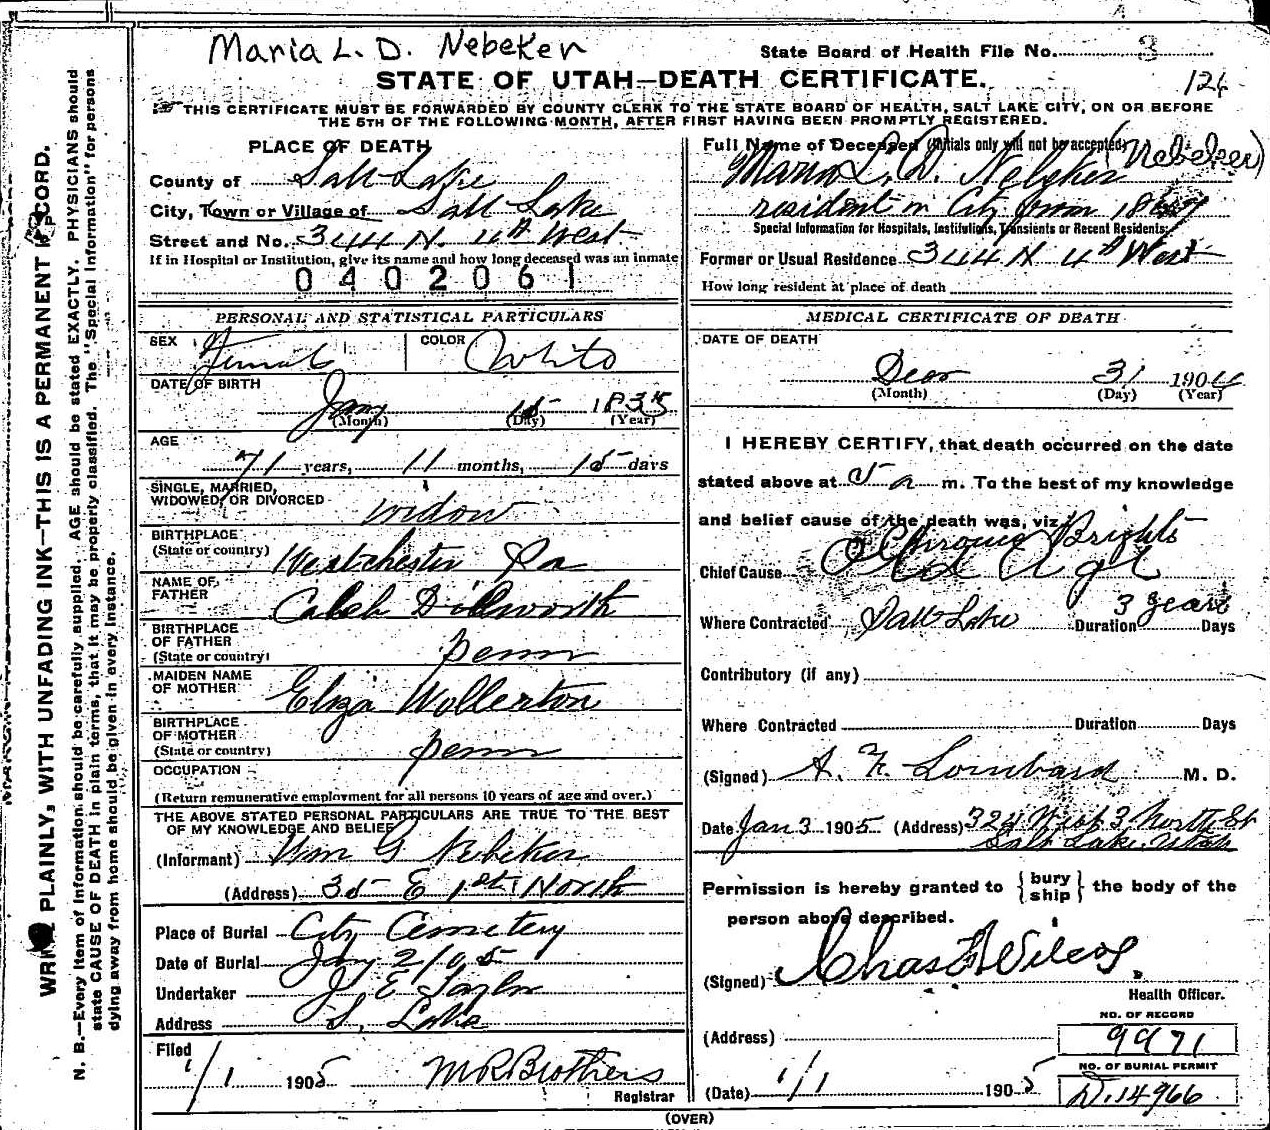 Maria L. D. Nebeker
State Board of Health File No. 3
STATE OF UTAH—DEATH CERTIFICATE.
126
THIS CERTIFICATE MUST BE FORWARDED BY COUNTY CLERK TO THE STATE BOARD OF HEALTH, SALT LAKE CITY, ON OR BEFORE
THE 5TH OF THE FOLLOWING MONTH, AFTER FIRST HAVING BEEN PROMPTLY REGISTERED.
PLACE OF DEATH
County of Salt Lake
City, Town or Village of Salt Lake
Street and No. 344 N. 4th West
If in Hospital or Institution, give its name and how long deceased was an inmate
0402061
Full Name of Deceased (Initials only will not be accepted) (Nebeker)
Maria L. D. Nebeker
resident in City from 1847
Special Information for Hospitals, Institutions, Transients or Recent Residents:
Former or Usual Residence 344 N 4th West
How long resident at place of death
PERSONAL AND STATISTICAL PARTICULARS
SEX Female
COLOR White
DATE OF BIRTH
Jany 15 1833
(Month) (Day) (Year)
AGE
71 years, 11 months, 15 days
SINGLE, MARRIED,
WIDOWED, OR DIVORCED widow
BIRTHPLACE
(State or country) Westchester Pa
NAME OF
FATHER Caleb Dilworth
BIRTHPLACE
OF FATHER
(State or country) Penn
MAIDEN NAME
OF MOTHER Eliza Wollerton
BIRTHPLACE
OF MOTHER
(State or country) Penn
OCCUPATION
(Return remunerative employment for all persons 10 years of age and over.)
THE ABOVE STATED PERSONAL PARTICULARS ARE TRUE TO THE BEST
OF MY KNOWLEDGE AND BELIEF
(Informant) Wm G Nebeker
(Address) 35 E 1st North
Place of Burial City Cemetery
Date of Burial Jany 2/05
Undertaker J E Taylor
Address S. Lake
Filed
1/1 1905 M R Brothers
Registrar
MEDICAL CERTIFICATE OF DEATH
DATE OF DEATH
Dec 31 1904
(Month) (Day) (Year)
I HEREBY CERTIFY, that death occurred on the date
stated above at 5 a m. To the best of my knowledge
and belief cause of the death was, viz
Chronic Brights
Chief Cause Old Age
Where Contracted Salt Lake Duration 3 years Days
Contributory (if any)
Where Contracted Duration Days
(Signed) A. F. Lombard M. D.
Date Jan 3 1905 (Address) 324 West 3 North St
Salt Lake, Utah
Permission is hereby granted to {bury ship} the body of the
person above described.
(Signed) Chas F Wilcox
Health Officer.
(Address)
NO. OF RECORD
9971
NO. OF BURIAL PERMIT
(Date) 1/1 1905
D. 14966
(OVER)
WRITE PLAINLY, WITH UNFADING INK—THIS IS A PERMANENT RECORD.
N. B.—Every item of information should be carefully supplied. AGE should be stated EXACTLY. PHYSICIANS should
state CAUSE OF DEATH in plain terms, that it may be properly classified. The "Special Information" for persons
dying away from home should be given in every instance.